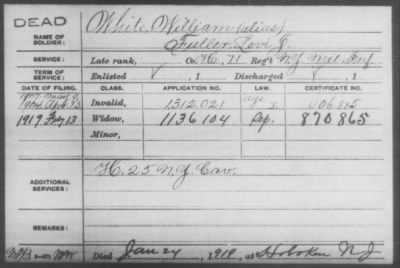 DEAD
NAME OF SOLDIER: White, William (alias)
Fuller, Levi J.
SERVICE: Late rank, Co. H, 71 Reg't N.Y. Mil Inf
TERM OF SERVICE: Enlisted , 1 Discharged , 1
DATE OF FILING. CLASS. APPLICATION NO. LAW. CERTIFICATE NO.
Invalid, 1312.021
1919 Widow, 1136104 870865
Minor,
ADDITIONAL SERVICES: H. 25 N.Y. Cav.
REMARKS:
Died Jan 24, 191, at Hoboken N J